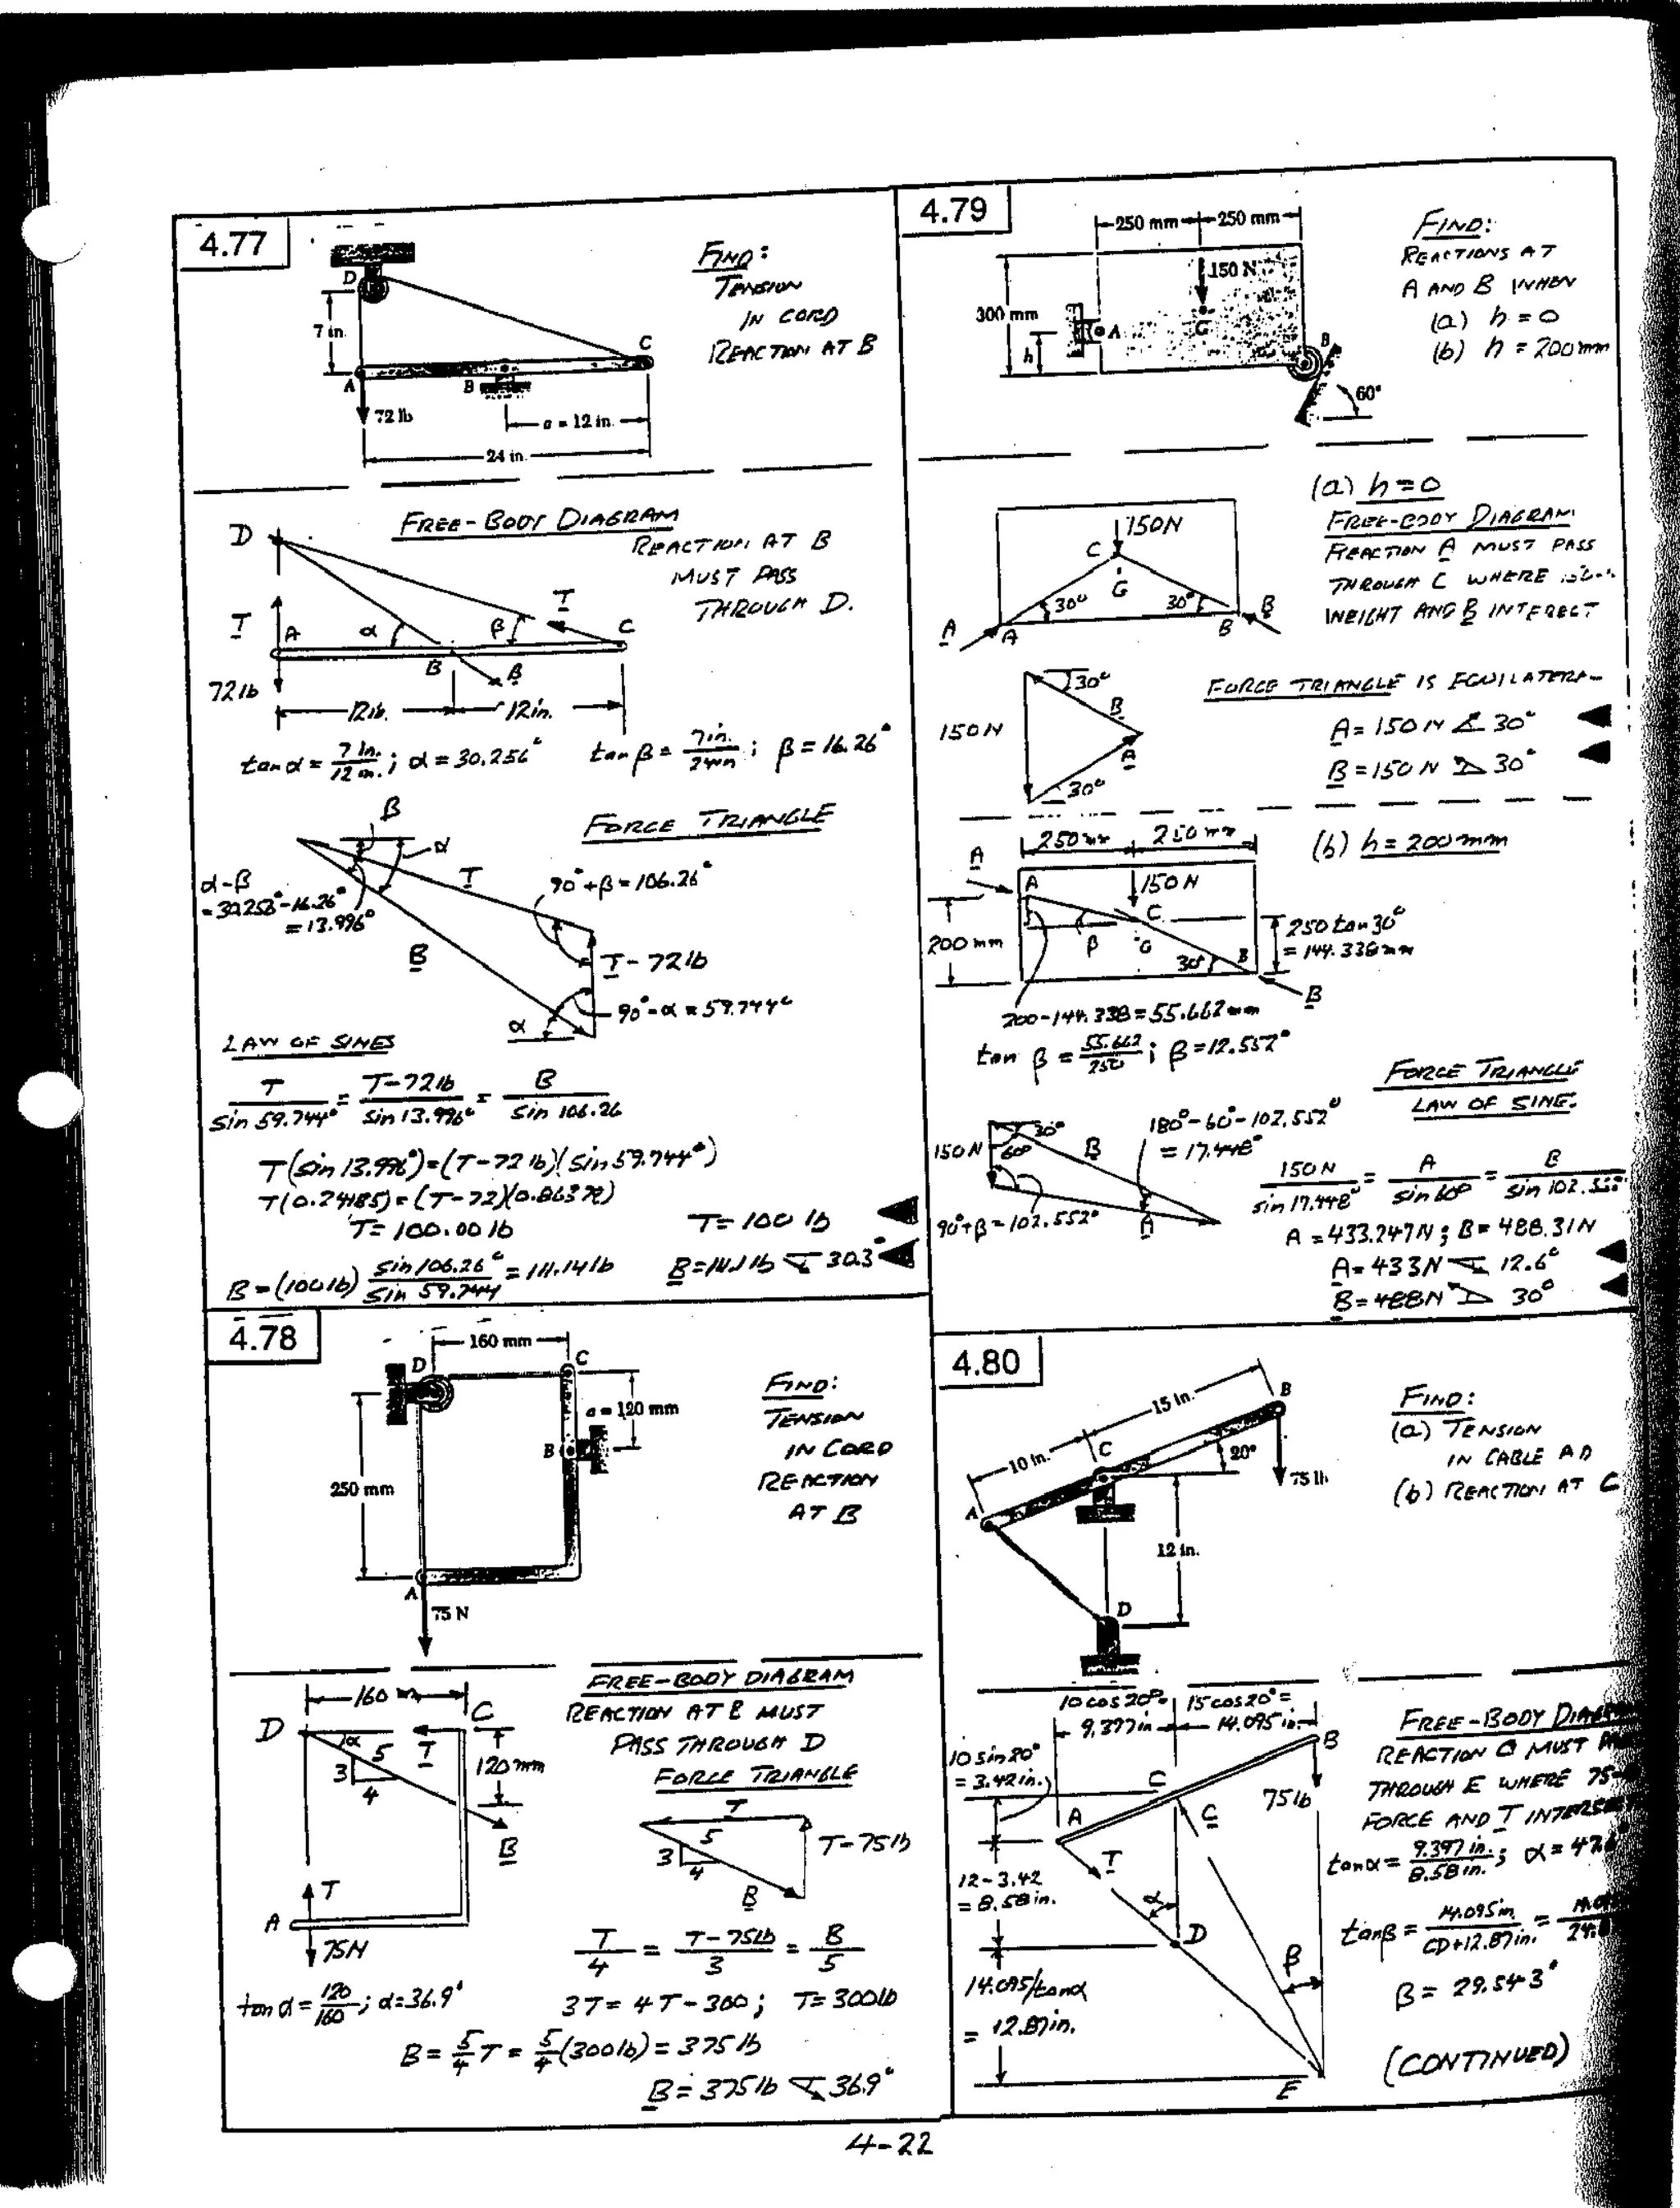 4.77
D
7 in.
A
B
C
72 lb
a = 12 in.
24 in.
FIND:
TENSION
IN CORD
REACTION AT B
FREE-BODY DIAGRAM
REACTION AT B
MUST PASS
THROUGH D.
D
T
A
α
β
T
C
B
B
72 lb
12in.
12in.
tan α = 7 in. / 12 in. ; α = 30.256°
tan β = 7in. / 24in ; β = 16.26°
FORCE TRIANGLE
β
α
α-β
= 30.256°-16.26°
= 13.996°
T
90°+β = 106.26°
B
T-72lb
90°-α = 59.744°
α
LAW OF SINES
T / sin 59.744° = T-72lb / sin 13.996° = B / sin 106.26
T(sin 13.996°) = (T-72 lb)(sin 59.744°)
T(0.24185) = (T-72)(0.86378)
T = 100.00 lb
T = 100 lb
B = (100lb) sin 106.26° / sin 59.744 = 111.14lb
B = 111.1 lb 30.3°
4.78
160 mm
D
C
a = 120 mm
B
250 mm
A
75 N
FIND:
TENSION
IN CORD
REACTION
AT B
FREE-BODY DIAGRAM
REACTION AT B MUST
PASS THROUGH D
FORCE TRIANGLE
160 m
D
C
α
5
T
3
4
120 mm
B
T
A
75N
T
5
3
4
T-75lb
B
tan α = 120 / 160 ; α = 36.9°
T / 4 = T-75lb / 3 = B / 5
3T = 4T-300 ; T = 300lb
B = 5/4 T = 5/4 (300lb) = 375 lb
B = 375 lb 36.9°
4.79
250 mm
250 mm
150 N
300 mm
A
G
h
B
60°
FIND:
REACTIONS AT
A AND B WHEN
(a) h = 0
(b) h = 200mm
(a) h = 0
FREE-BODY DIAGRAM
REACTION A MUST PASS
THROUGH C WHERE
WEIGHT AND B INTERSECT
150N
C
G
30°
30°
A
A
B
B
30°
150 N
B
A
30°
FORCE TRIANGLE IS
A = 150 N 30°
B = 150 N 30°
(b) h = 200 mm
250mm
250 mm
A
A
150 N
C
200 mm
β
G
30°
B
B
250 tan 30°
= 144.338mm
200-144.338 = 55.662mm
tan β = 55.662 / 250 ; β = 12.552°
FORCE TRIANGLE
LAW OF SINE
30°
150 N
60°
B
180°-60°-102.552°
= 17.448°
90°+β = 102.552°
A
150 N / sin 17.448° = A / sin 60° = B / sin 102.552
A = 433.247N ; B = 488.31N
A = 433N 12.6°
B = 488N 30°
4.80
15 in.
B
10 in.
C
20°
75 lb
A
12 in.
D
FIND:
(a) TENSION
IN CABLE AD
(b) REACTION AT C
10 cos 20°=
9.397in
15 cos 20° =
14.095 in.
10 sin 20°
= 3.42in.
C
B
A
C
75lb
T
12-3.42
= 8.58in.
α
D
14.095/tanα
= 12.87in.
β
E
FREE-BODY
REACTION C MUST
THROUGH E WHERE 75-
FORCE AND T
tanα = 9.397 in. / 8.58in. ;
tanβ = 14.095in. / CD+12.87in. =
β = 29.543°
(CONTINUED)
4-22